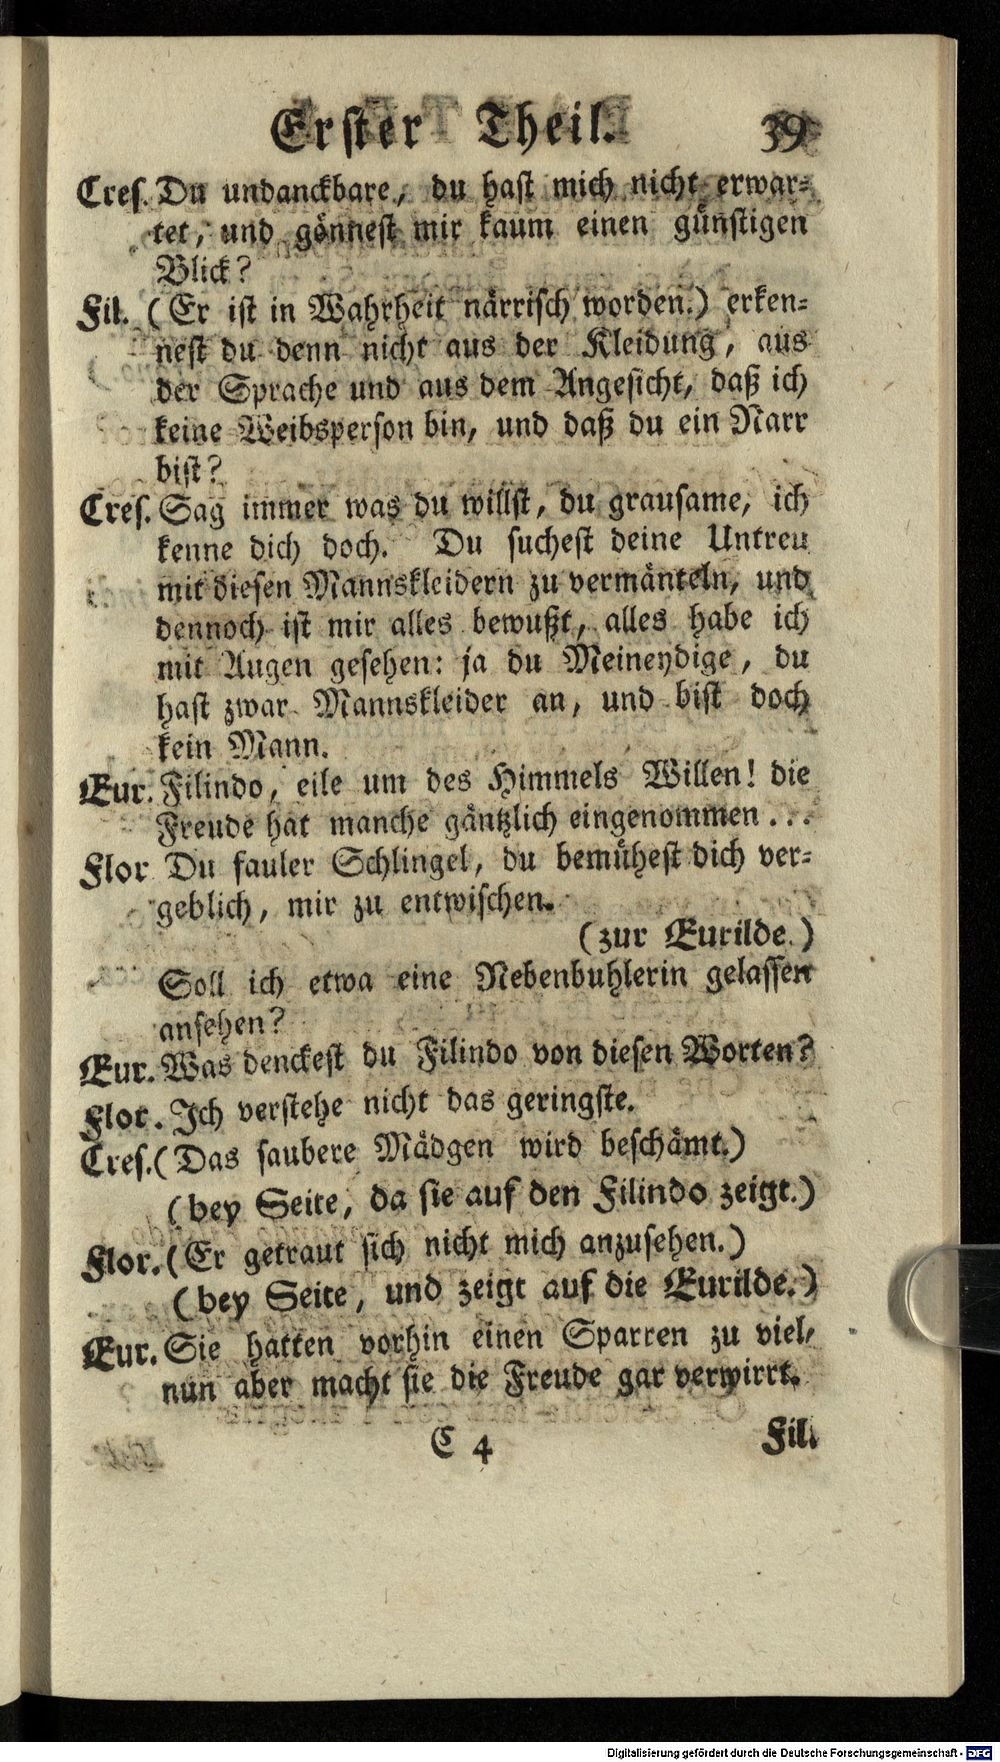 Erster Theil. 39
Cres. Du undanckbare, du hast mich nicht erwar-
tet, und gönnest mir kaum einen günstigen
Blick?
Fil. (Er ist in Wahrheit närrisch worden.) erken-
nest du denn nicht aus der Kleidung, aus
der Sprache und aus dem Angesicht, daß ich
keine Weibsperson bin, und daß du ein Narr
bist?
Cres. Sag immer was du willst, du grausame, ich
kenne dich doch. Du suchest deine Untreu
mit diesen Mannskleidern zu vermänteln, und
dennoch ist mir alles bewußt, alles habe ich
mit Augen gesehen: ja du Meineydige, du
hast zwar Mannskleider an, und bist doch
kein Mann.
Eur. Filindo, eile um des Himmels Willen! die
Freude hat manche gäntzlich eingenommen...
Flor Du fauler Schlingel, du bemühest dich ver-
geblich, mir zu entwischen.
(zur Eurilde.)
Soll ich etwa eine Nebenbuhlerin gelassen
ansehen?
Eur. Was denckest du Filindo von diesen Worten?
Flor. Ich verstehe nicht das geringste.
Cres. (Das saubere Mädgen wird beschämt.)
(bey Seite, da sie auf den Filindo zeigt.)
Flor. (Er getraut sich nicht mich anzusehen.)
(bey Seite, und zeigt auf die Eurilde.)
Eur. Sie hatten vorhin einen Sparren zu viel,
nun aber macht sie die Freude gar verwirrt.
C 4 Fil.
Digitalisierung gefördert durch die Deutsche Forschungsgemeinschaft - DFG